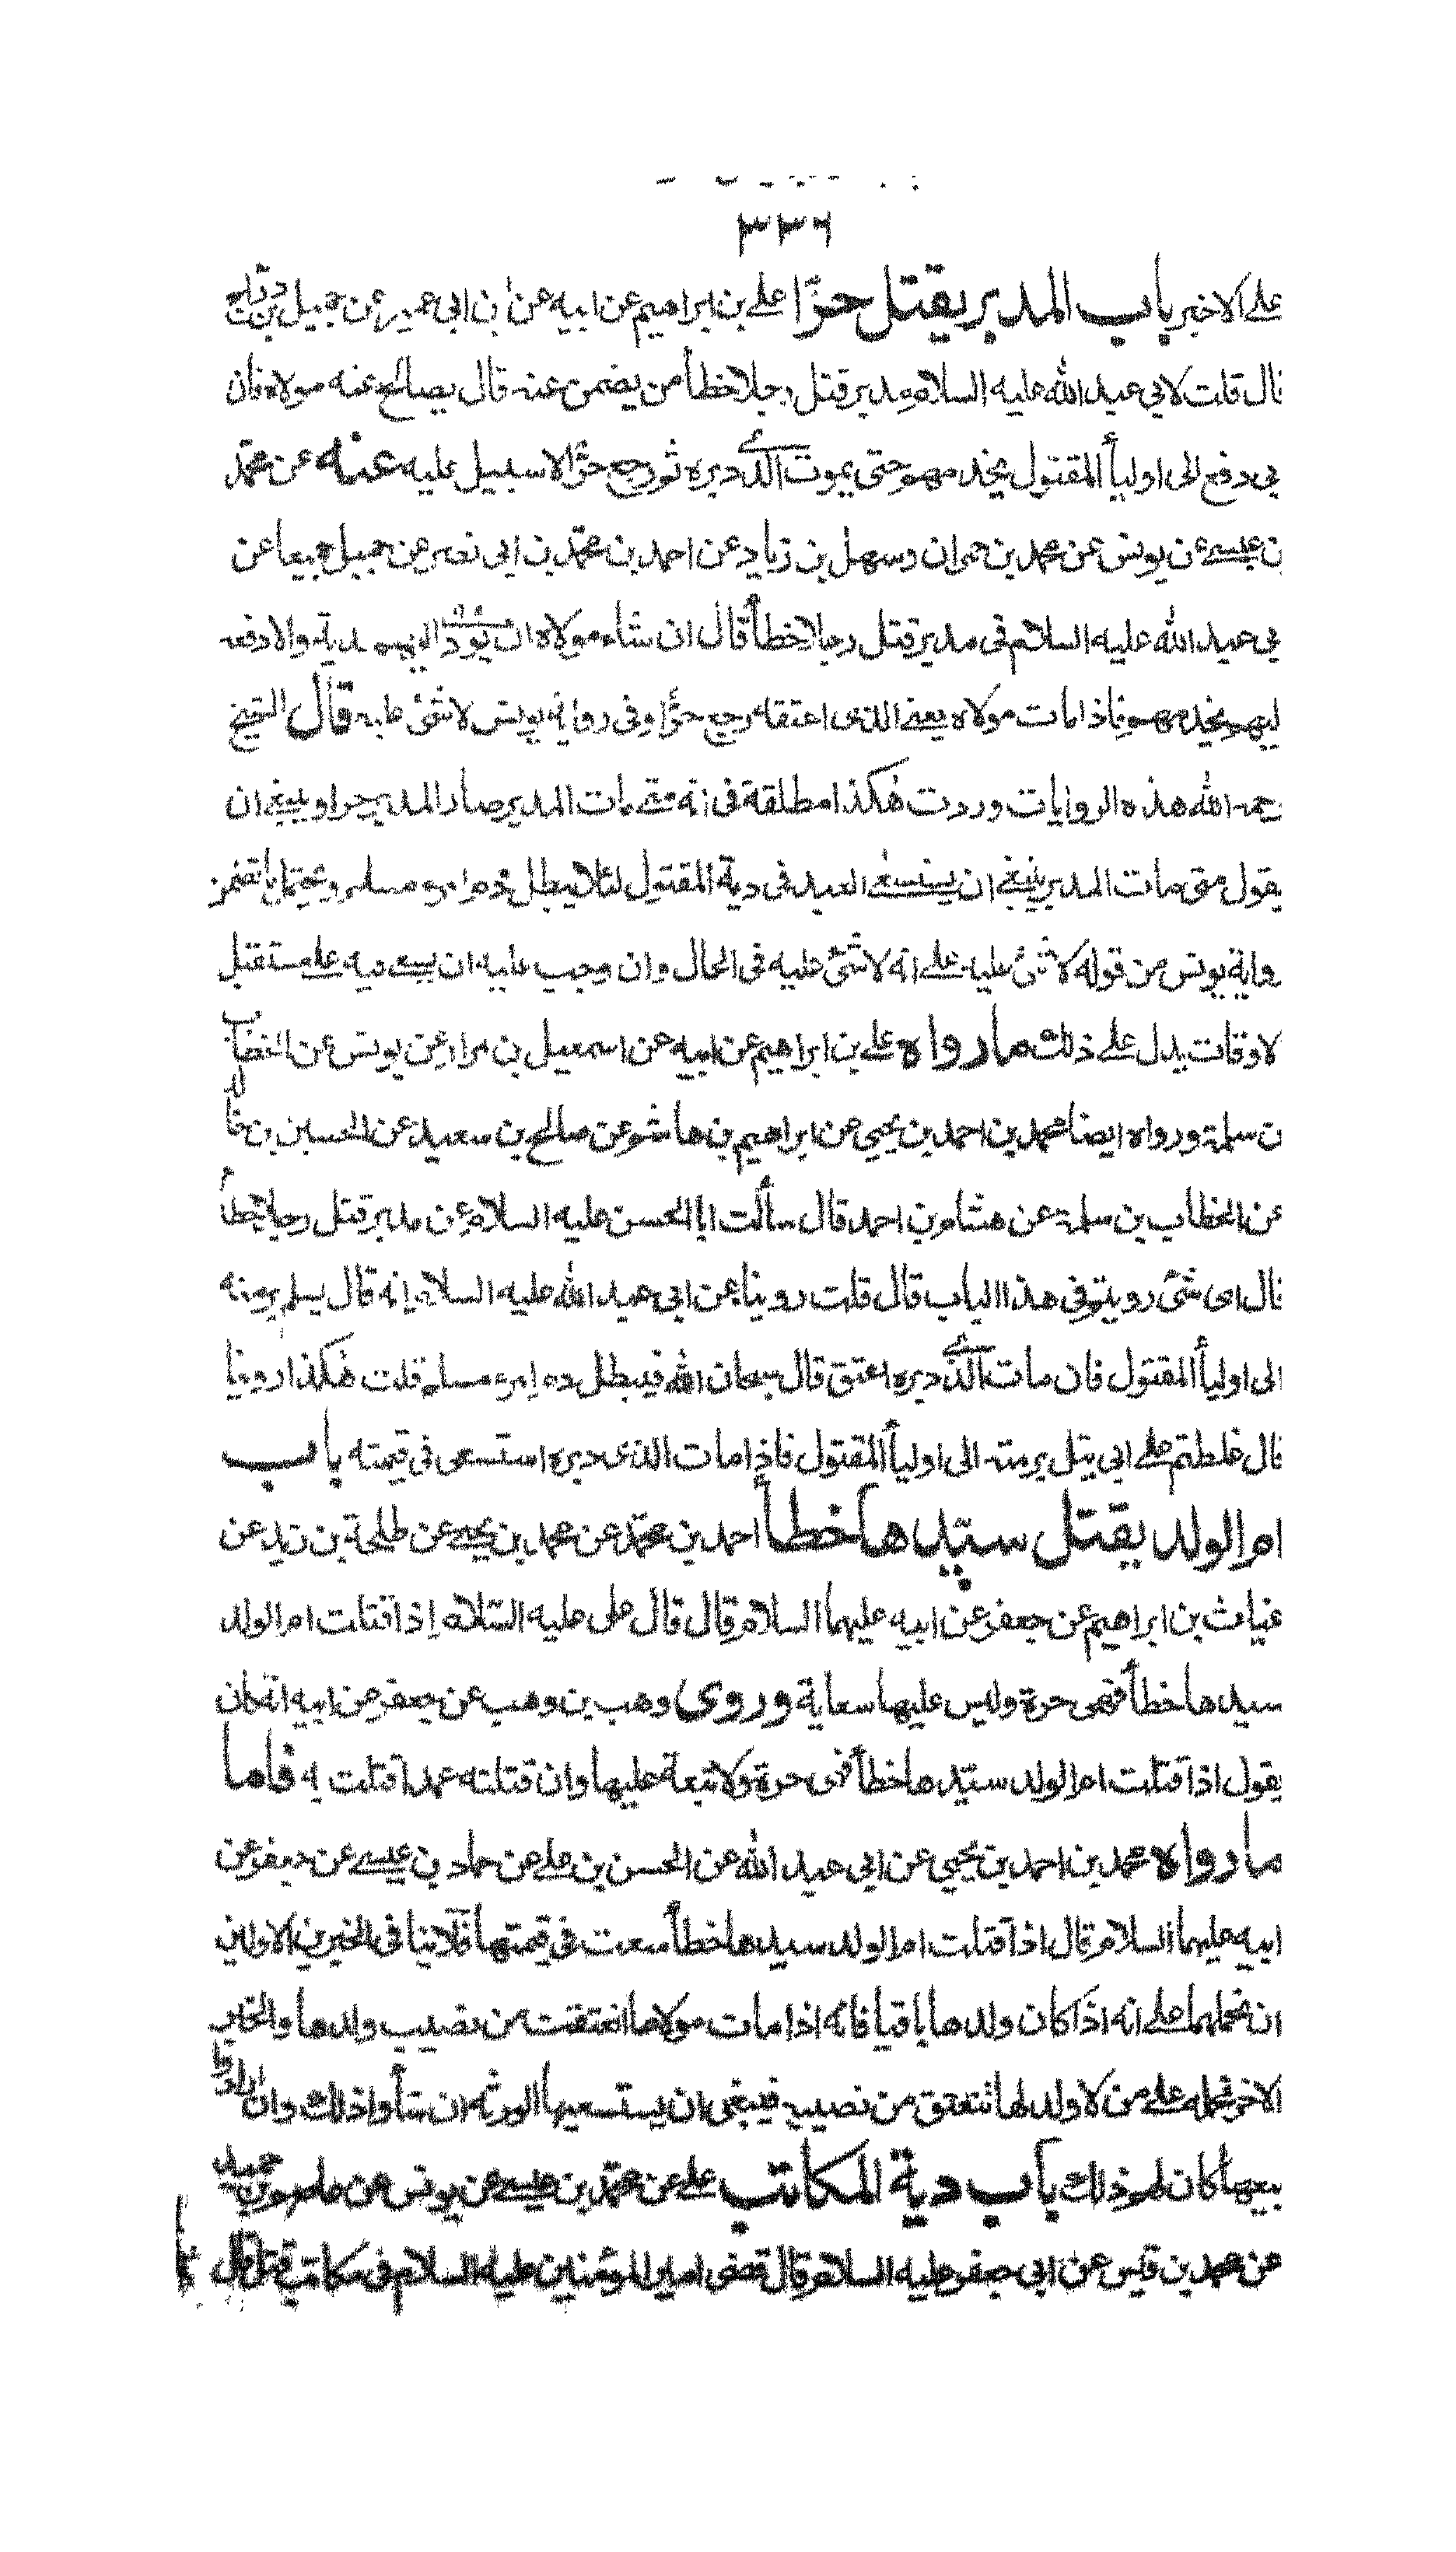 ٣٣٦
على الاخير باب المدبر يقتل حرّا على بن ابراهيم عن ابيه عن ابن ابى عمير عن جميل بن دراج
قال قلت لابي عبد الله عليه السلام مدبر قتل رجلا خطأ من يضمن عنه قال يصالح عنه مولاه فان
ابي دفع الى اولياأ المقتول يخدمهم حتى يموت الذي دبره ثم يرجع حرّا لا سبيل عليه عنه عن محمّد
بن عيسى عن يونس عن محمد بن حمران وسهل بن زياد عن احمد بن محمّد بن ابي نصر عن جميل جميعا عن
ابي عبد الله عليه السلام في مدبر قتل رجلا خطأ قال ان شاء مولاه ان يودّ اليهم الدية والا دفعه
اليهم يخدمهم فاذا مات مولاه يعنى الذى اعتقه رجع حرّا وفى رواية يونس لا شئ عليه قال الشيخ
رحمه الله هذه الروايات وردت هٰكذا مطلقة فى انه متى مات المدبر صار المدبر حرا وينبغى ان
يقول متى مات المدبر ينبغى ان يستسعى العبد فى دية المقتول لئلا يبطل دم امرء مسلم ويحتمل ما تضمن
رواية يونس من قوله لا شئ عليه على انه لا شئ عليه فى الحال وان وجب عليه ان يسعى فيه على مستقبل
الاوقات يدل على ذلك ما رواه على بن ابراهيم عن ابيه عن اسمعيل بن مرار عن يونس عن الخطاب
بن سلمة ورواه ايضا محمد بن احمد بن يحيى عن ابراهيم بن هاشم عن صالح بن سعيد عن الحسين بن خالد
عن الخطاب بن سلمة عن هشام بن احمد قال سألت ابا الحسن عليه السلام عن مدبر قتل رجلا خطأ
قال اى شئ رويتم فى هذا الباب قال قلت روينا عن ابى عبد الله عليه السلام انه قال يسلم برمته
الى اولياأ المقتول فان مات الذي دبره اعتق قال سبحان الله فيبطل دم امرء مسلم قلت هٰكذا روينا
قال غلطتم على ابي يتل برمته الى اولياأ المقتول فاذا مات الذى دبره استسعى فى قيمته باب
ام الولد يقتل سيّدها خطأ احمد بن محمّد عن محمد بن يحيى عن طلحة بن زيد عن
غياث بن ابراهيم عن جعفر عن ابيه عليهما السلام قال قال على عليه السّلام اذا قتلت ام الولد
سيدها خطأ فهى حرة وليس عليها سعاية وروى وهب بن وهب عن جعفر عن ابيه انه كان
يقول اذا قتلت ام الولد سيّدها خطأ فهى حرة ولا تبعة عليها وان قتلته عمدا قتلت به فاما
ما رواه محمد بن احمد بن يحيى عن ابى عبد الله عن الحسن بن على عن حماد بن عيسى عن جعفر عن
ابيه عليهما السلام قال اذا قتلت ام الولد سيدها خطأ سعت فى قيمتها فلا ينا فى الخبرين الاولين
ان نحملهما على انه اذا كان ولدها باقيا فانه اذا مات مولاها انعتقت من نصيب ولدها والخبر
الاخر نحمله على من لا ولد لها تنعتق من نصيبه فينبغى ان يستسعيها الورثه ان شأوا ذلك وان ارادوا
بيعها كان لهم ذلك باب دية المكاتب على عن محمّد بن عيسى عن يونس عن عاصم بن حميد
عن محمد بن قيس عن ابى جعفر عليه السلام قال قضى امير المؤمنين عليه السلام فى مكاتب قتل قال